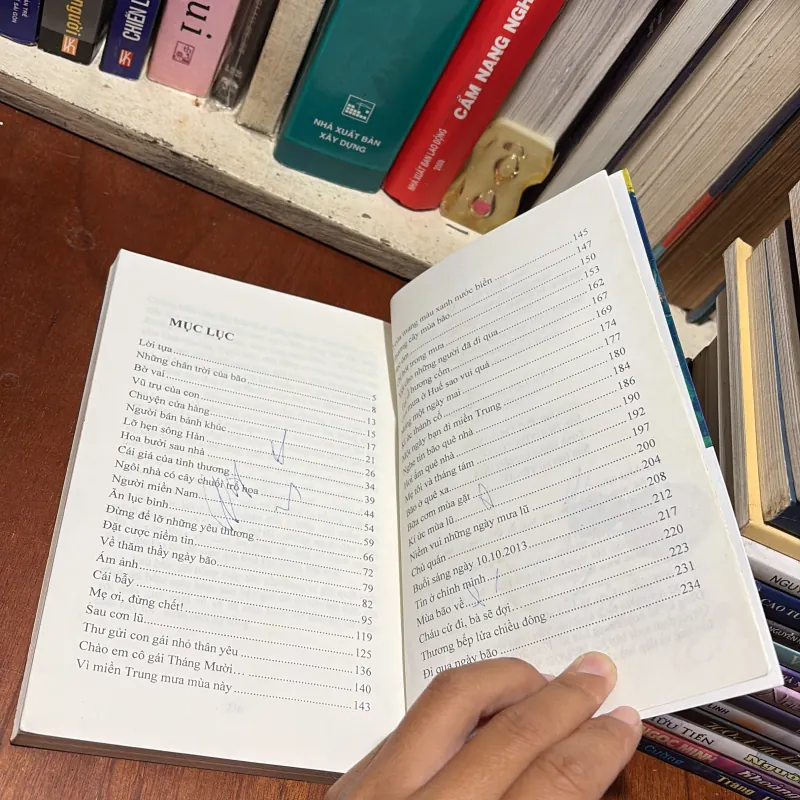 người
CHIẾN L
ui
NHÀ XUẤT BẢN
XÂY DỰNG
CẨM NANG NGH
NHÀ XUẤT BẢN LAO ĐỘNG
MỤC LỤC
Lời tựa 5
Những chân trời của bão 8
Bờ vai 13
Vũ trụ của con 15
Chuyện cửa hàng 17
Người bán bánh khúc 21
Lỡ hẹn sông Hàn 26
Hoa bưởi sau nhà 34
Cái giá của tình thương 39
Ngôi nhà có cây chuối trổ hoa 44
Người miền Nam 54
Ăn lục bình 59
Đừng để lỡ những yêu thương 66
Đặt cược niềm tin 72
Về thăm thầy ngày bão 79
Ám ảnh 82
Cái bẫy 95
Mẹ ơi, đừng chết! 119
Sau cơn lũ 125
Thư gửi con gái nhỏ thân yêu 136
Chào em cô gái Tháng Mười 140
Vì miền Trung mưa mùa này 143
mang màu xanh nước biển 145
cây mùa bão 147
150
trong mưa 153
những người đã đi qua 162
hương cốm 167
mưa ở Huế sao vui quá 169
một ngày mai 174
Kí ức thành cổ 177
Một ngày bạn đi miền Trung 180
Nghe tin bão quê nhà 184
Hơi ấm quê nhà 186
Mẹ tôi và tháng tám 190
Bão ở quê xa 192
Bữa cơm mùa gặt 197
Kí ức mùa lũ 200
Niềm vui những ngày mưa lũ 204
Chủ quán 208
Buổi sáng ngày 10.10.2013 212
Tin ở chính mình 217
Mùa bão về 220
Cháu cứ đi, bà sẽ đợi 223
Thương bếp lửa chiều đông 231
Đi qua ngày bão 234
NGỌC MINH
Trang